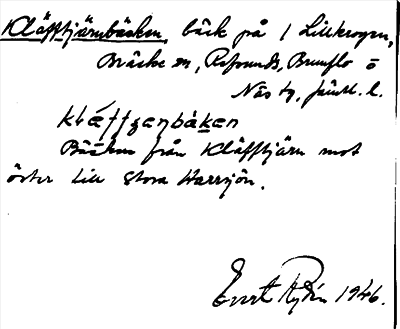 Kläfftjärnbäcken, bäck på 1 Lillkrogen,
Bräcke sn, Refsunds, Brunflo o
Näs tg, Jämtl. l.
klæftʒenbäken
Bäcken från Kläfftjärn mot
öster till Stora Harrsjön.
Evert Rydén 1946.